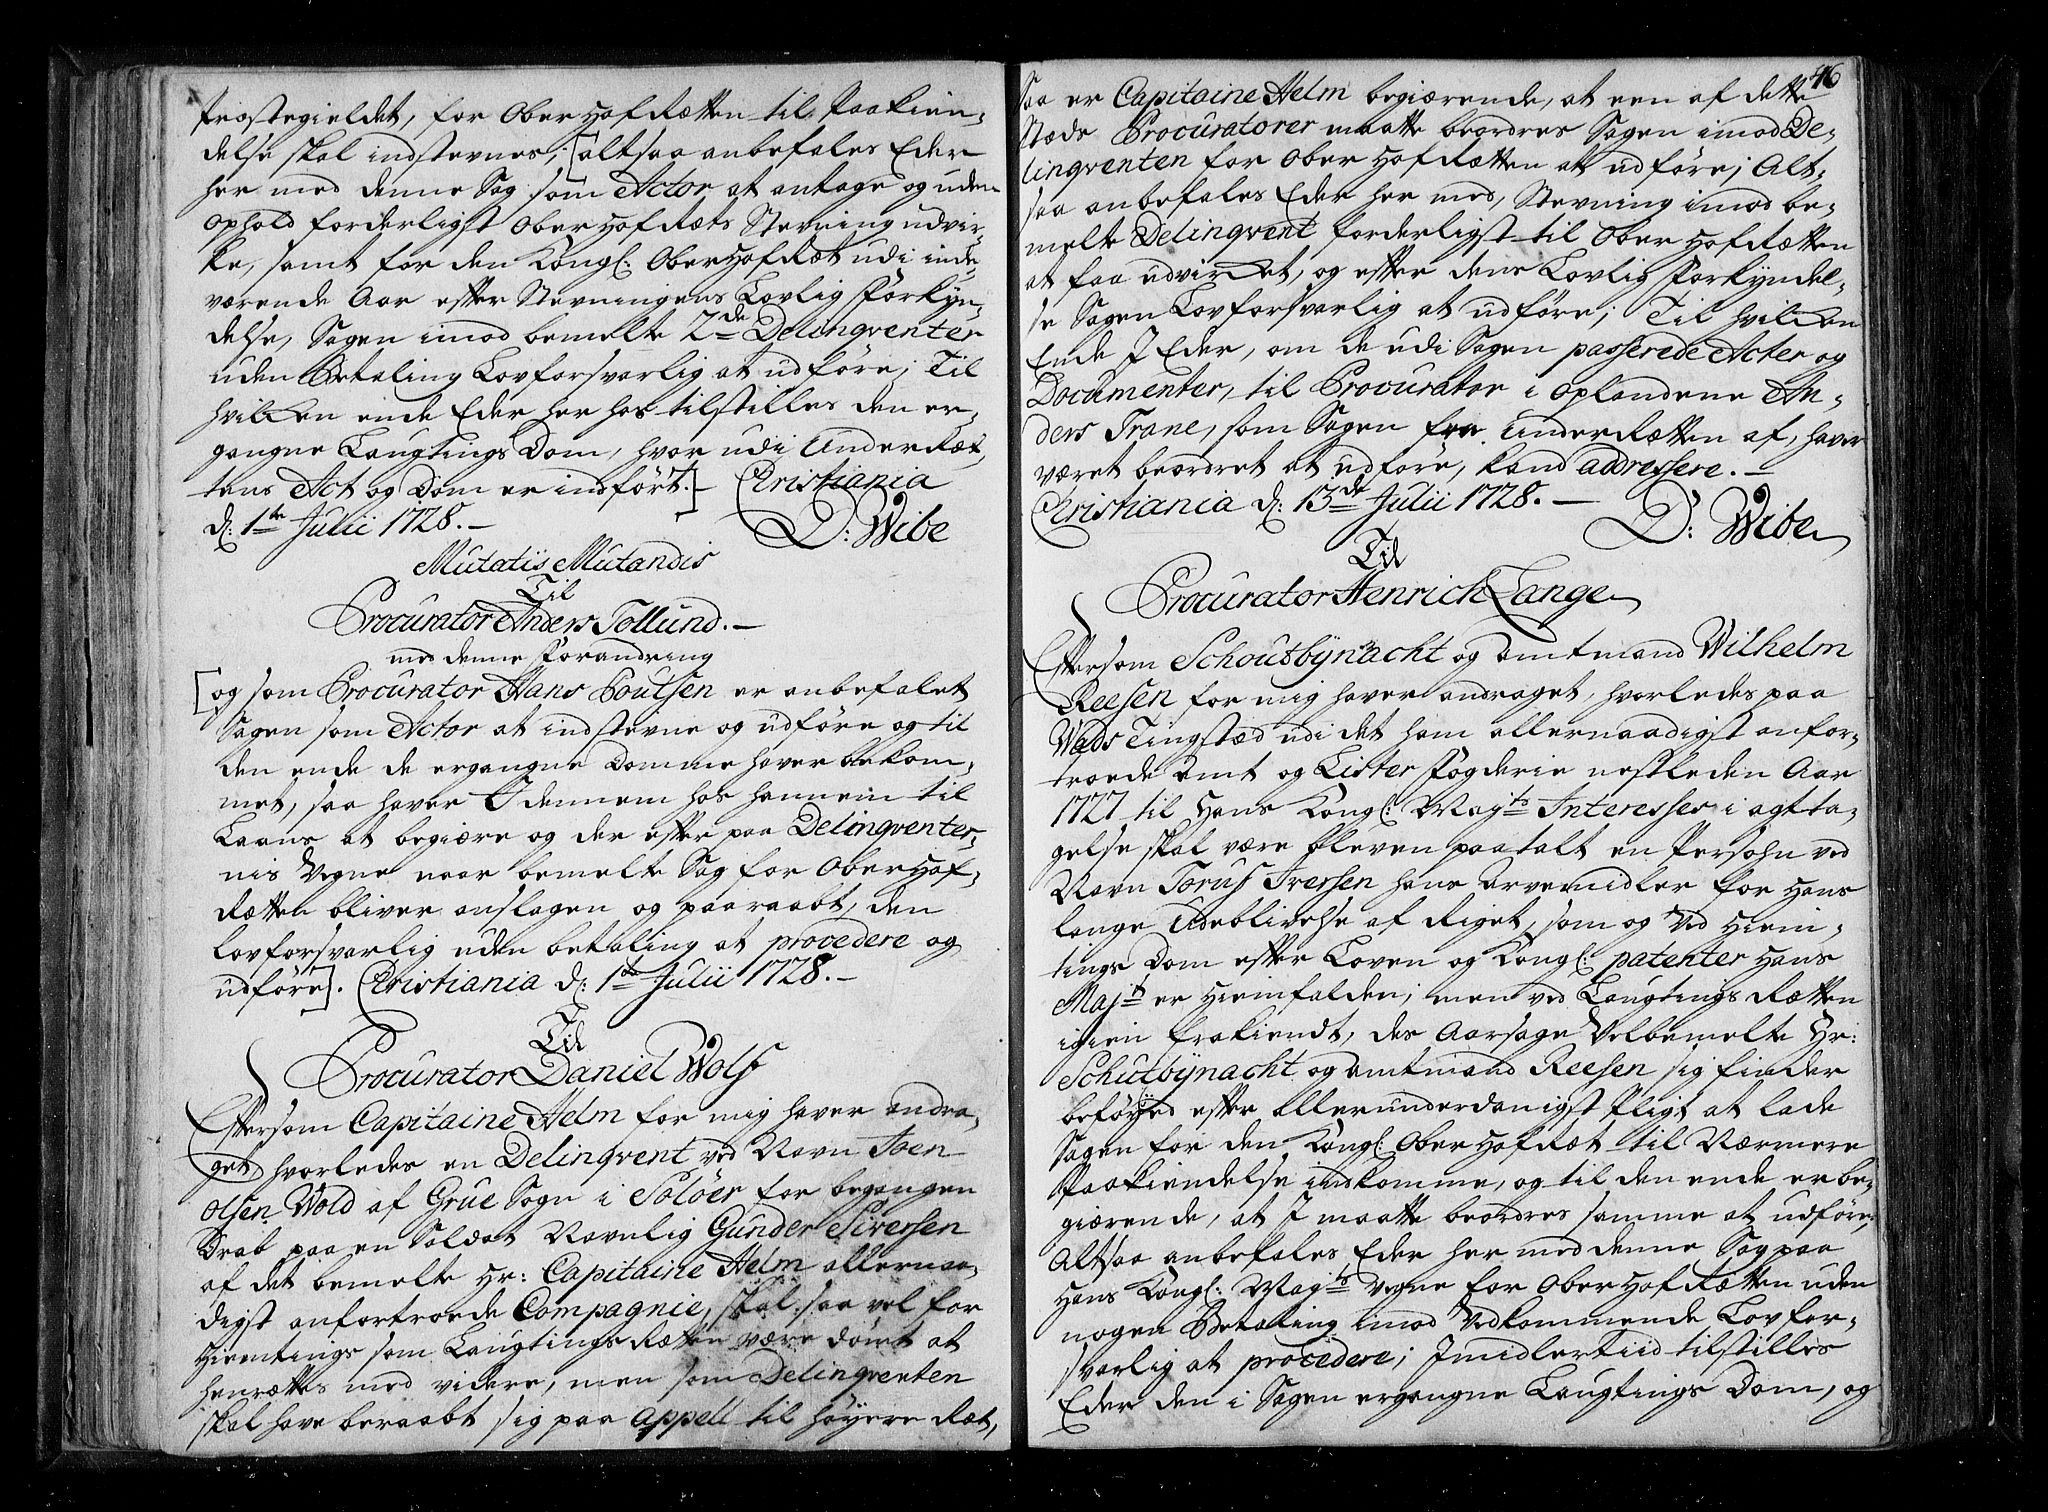 Prestegieldet, for OberHofRetten til Paakien-
delse skal indstevnes; [altsaa anbefales Eder
her med denne Sag som Actor at antage og uden
ophold forderligst OberHofRets Stevning udvir-
ke, samt for den Kongl: OberHofRæt udi inde-
værende Aar efter Stevningens Lovlig Forkyn-
delse, Sagen imod bemelte 2de Delinqventer
uden Betaling Lovforsvarlig at udføre; Til
hvilken ende Eder her hos tilstilles den er-
gangne Laugtings Dom, hvor udi Under Ret-
tens Act og Dom er indført.] Christiania
d: 1te Julii 1728.-
D: Wibe
Mutatis Mutandis
Til
Procurator Anders Tollund.-
med denne Forandring
[og som Procurator Hans Poulsen er anbefalet
Sagen som Actor at indstevne og udføre og til
den ende de ergangne Domme haver bekom-
met, saa haver I dennem hos hannem til
Laans at begiære og der efter paa Delinqventer-
nis Vegne naar bemelte Sag for OberHof-
Retten bliver anslagen og paaraabt, den
lovforsvarlig uden betaling at procedere og
udføre]. Christiania d: 1te Julii 1728.-
Til
Procurator Daniel Wolf
Eftersom Capitaine Helm for mig haver andra-
get hvorledes en Delinqvent ved Navn Joen
Olsen Wold af Grue Sogn i Soløer for begangen
Drab paa en Soldat Navnlig Gunder Siversen
af det bemelte Hr: Capitaine Helm allernaa-
digst anfortroede Compagnie, skal saa vel for
Hiemtings som Laugtings Retten være dømt at
henrettes med videre, men som Delinqventen
skal have beraabt sig paa appell til høyere Ræt,
46
Saa er Capitaine Helm begiærende, at een af dette
Stæds Procuratorer maatte beordres Sagen imod De-
linqventen for Ober Hof Retten at udføre; Alt-
saa anbefales Eder her med, Stevning imod be-
melte Delinqvent forderligst til Ober Hof Retten
at faa udvirket, og efter dens Lovlig Forkyndel-
se Sagen Lovforsvarlig at udføre; Til hvilken
Ende I Eder, om de udi Sagen passerede Acter og
Documenter, til Procurator i Oplandene An-
ders Trane, som Sagen fra Under Retten af, haver
været beordret at udføre, kand addressere.-
Christiania d: 13de Julii 1728.-
D: Wibe
Til
Procurator Henrich Lange
Eftersom Schoutbynacht og Amtmand Wilhelm
Reesen for mig haver andraget, hvorledes paa
Wads Tingsted udi det ham allernaadigst anfor-
troede Amt og Lister Fogderie nestleden Aar
1727 til Hans Kongl: Mayts Interesser i agt ta-
gelse skal være bleven paatalt en Persohn ved
Navn Torus Iversen hans Arvemidler for Hans
lange Udeblivelse af Riget, som og ved Hiem-
tings Dom efter Loven og Kongl: patenter Hans
Majts er hiemfalden; men ved Laugtings Retten
igien frakiendt, des Aarsage Velbemelte Hr:
Schutbynacht og Amtmand Reesen sig finder
beføyed efter Allerunderdanigst Pligt at lade
Sagen for den Kongl: Ober Hof Ræt til Nærmere
Paakiendelse indkomme, og til den ende er be-
giærende, at I maatte beordres samme at udføre;
Altsaa anbefales Eder her med denne Sag paa
Hans Kongl: Majts Vegne for Ober Hof Retten uden
nogen Betaling imod Vedkommende Lovfor-
svarlig at procedere; Imidlertiid tilstilles
Eder den i Sagen ergangne Laugtings Dom, og